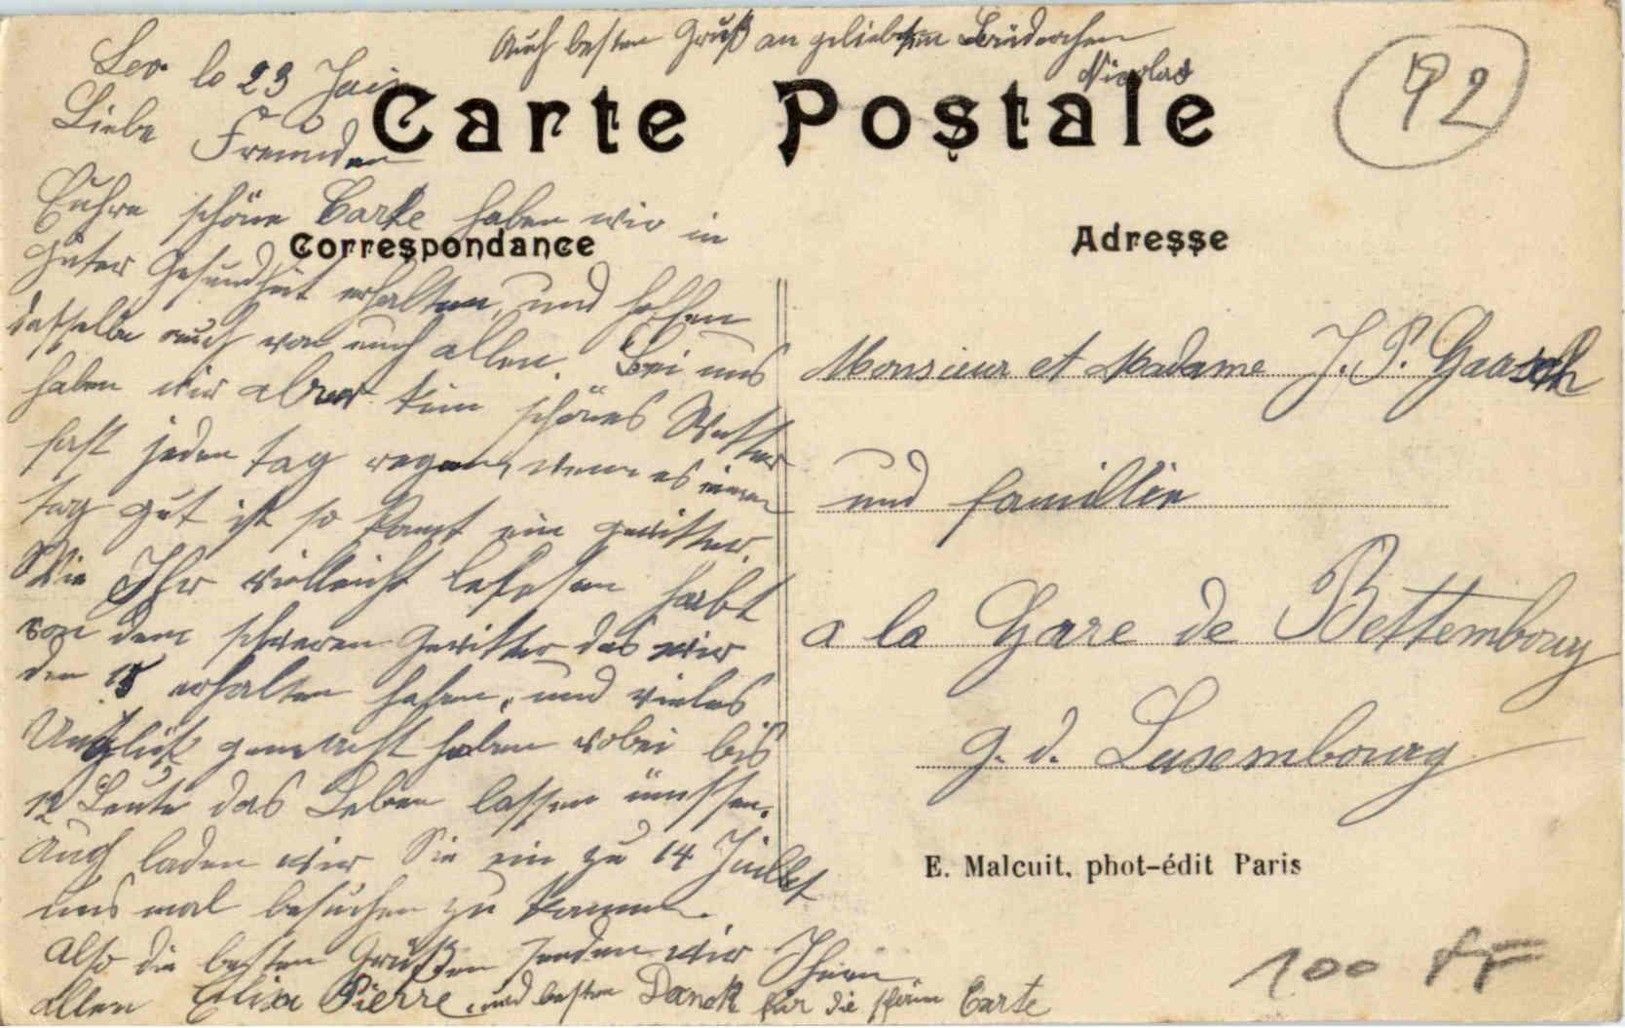 Auch besten Gruß an geliebten Brüderchen
Nicolas
Lev. le 23 Juin
Liebe Freunden
Carte Postale
92
Euhre schöne Carte haben wir in
Correspondance
guter Gesundheit erhalten, und hoffen
dasselbe auch von euch allen. Bei uns
haben wir aber kein schönes Wetter
fast jeden tag regen, wenn es einen
tag gut ist so komt ein gewitter.
Wie Ihr vielleicht gelesen habt
von dem schweren Gewitter das wir
den 15 erhalten haben, und vieles
Unglück gemacht haben wobei bis
12 Leute das Leben lassen müssen.
Auch laden wir Sie ein zu 14 Juillet
uns mal besuchen zu kommen.
Also die besten Grüßen senden wir Ihnen
allen Elisa Pierre und besten Danck für die schöne Carte
Adresse
Monsieur et Madame J. P. Gaasch
und famillie
a la Gare de Bettembourg
g. d. Luxembourg
E. Malcuit, phot-édit Paris
100 FF